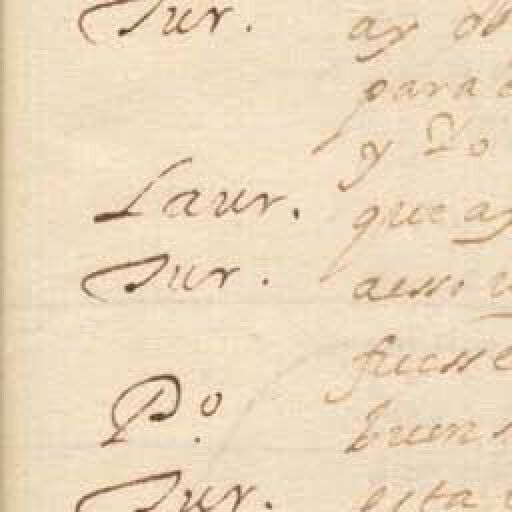 Jur. ay
para
y Yo
Laur. que ay
Jur. aesso
fuesse
Pº. buen
Jur. esta